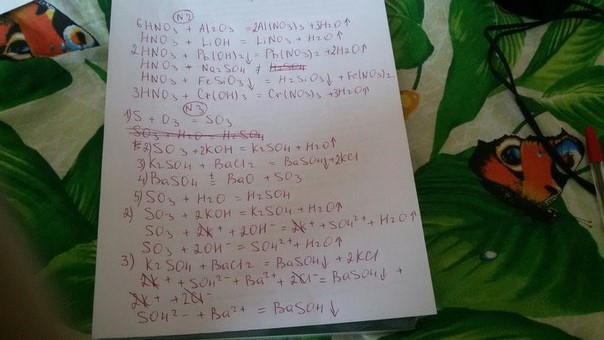 N2
6HNO3 + Al2O3 = 2Al(NO3)3 + 3H2O↑
HNO3 + LiOH = LiNO3 + H2O↑
2HNO3 + Pb(OH)2↓ = Pb(NO3)2 + 2H2O↑
HNO3 + Na2SO4 ≠ H2SO4
HNO3 + FeSiO3↓ = H2SiO3↓ + Fe(NO3)2
3HNO3 + Cr(OH)3 = Cr(NO3)3 + 3H2O↑
N3
1) S + O3 = SO3
SO3 + H2O = H2SO4
2) SO3 + 2KOH = K2SO4 + H2O↑
3) K2SO4 + BaCl2 = BaSO4↓ + 2KCl
4) BaSO4 t= BaO + SO3
5) SO3 + H2O = H2SO4
2) SO3 + 2KOH = K2SO4 + H2O↑
SO3 + 2K+ + 2OH- = 2K+ + SO4 2+ + H2O↑
SO3 + 2OH- = SO4 2+ + H2O↑
3) K2SO4 + BaCl2 = BaSO4↓ + 2KCl
2K+ + SO4 2- + Ba2+ + 2Cl- = BaSO4↓ +
2K+ + 2Cl-
SO4 2- + Ba2+ = BaSO4↓